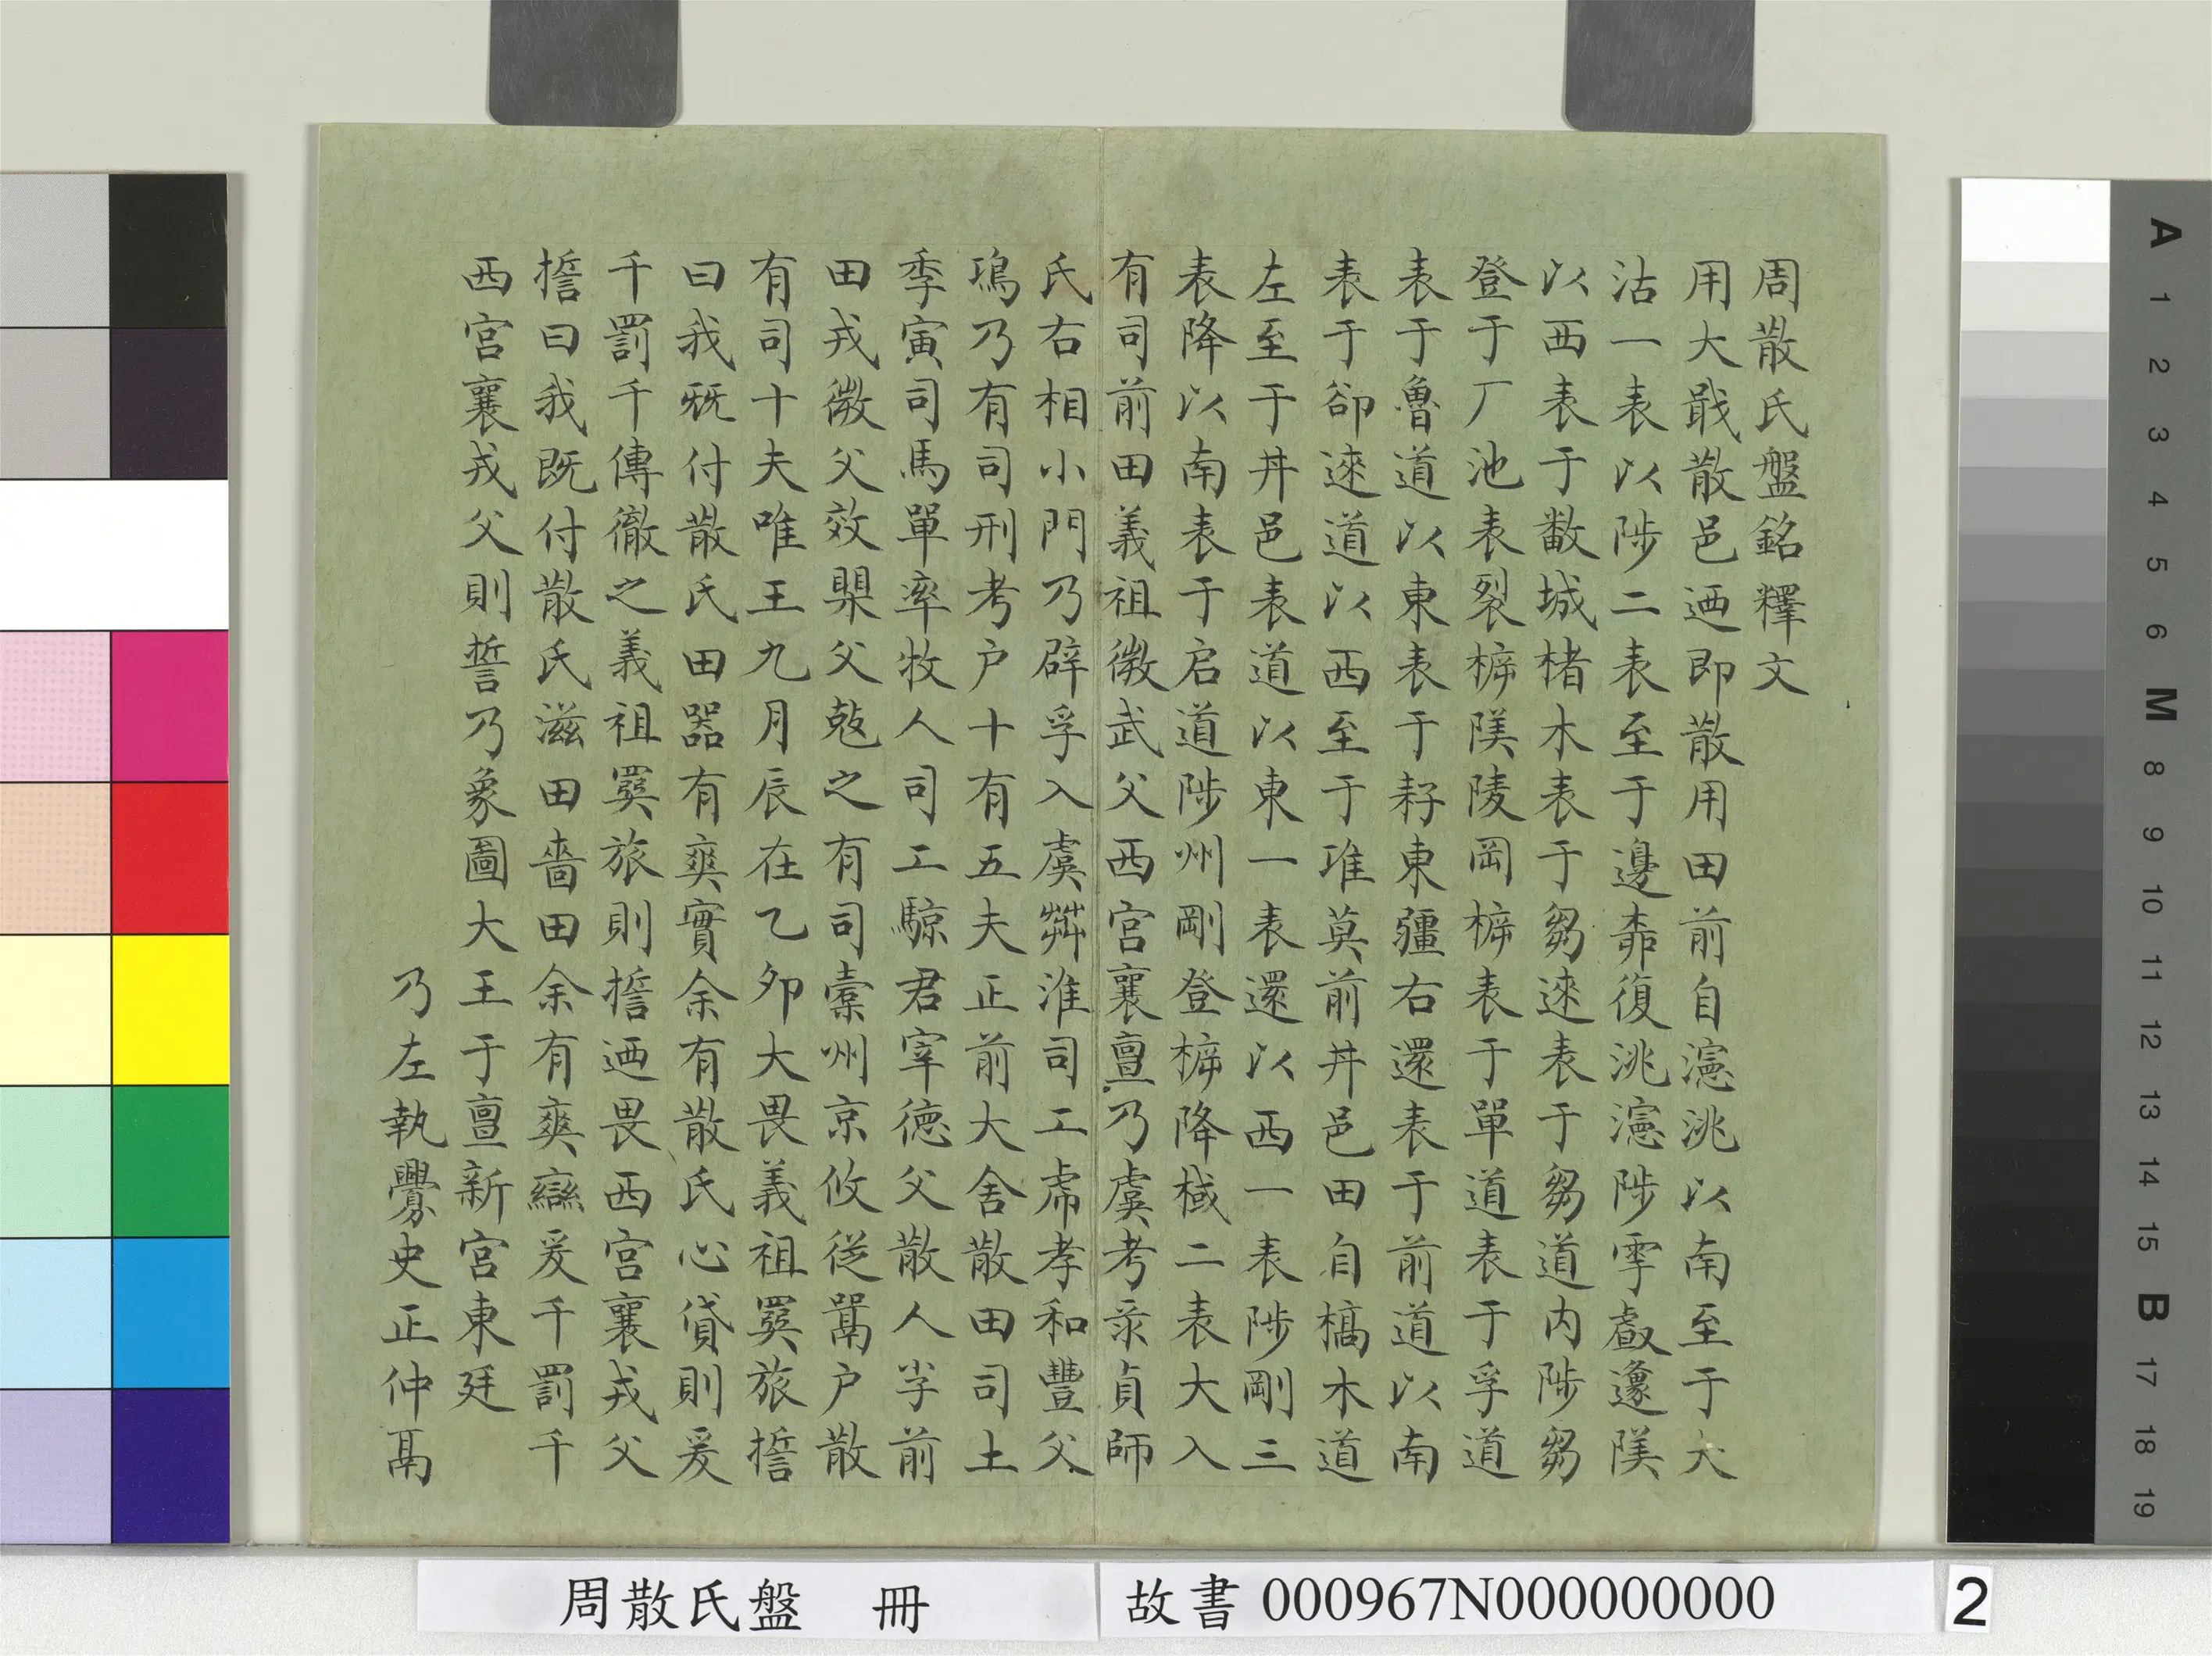 周散氏盤銘釋文
用大戢散邑迺即散用田前自瀗洮以南至于大
沽一表以陟二表至于邊桒復洮瀗陟雩䖒邍陕
以西表于敾城楮木表于芻逨表于芻道内陟芻
登于厂池表裂㭫陕陵岡㭫表于單道表于孚道
表于魯道以東表于耔東疆右還表于前道以南
表于郤逨道以西至于琟莫前丼邑田自槁木道
左至于丼邑表道以東一表還以西一表陟剛三
表降以南表于启道陟州剛登㭫降棫二表大入
有司前田義祖微武父西宮襄亶乃虞考彔貞師
氏右相小門乃辟孚入虞茻淮司工虒孝和豐父
鳿乃有司刑考户十有五夫正前大舍散田司土
季寅司馬單率牧人司工騬君宰德父散人芈前
田戎微父效㮚父㝅之有司橐州京攸從鬲户散
有司十夫唯王九月辰在乙夘大畏義祖𦋺旅㩼
曰我旣付散氏田器有爽實余有散氏心貸則爰
千罰千傳徹之義祖𦋺旅則㩼迺畏西宮襄戎父
㩼曰我既付散氏滋田嗇田余有爽䜌爰千罰千
西宮襄戎父則誓乃象圖大王于亶新宮東廷
乃左執史正仲鬲
周散氏盤 冊
故書 000967N000000000
2
A 1 2 3 4 5 6 M 8 9 10 11 12 13 14 15 B 17 18 19